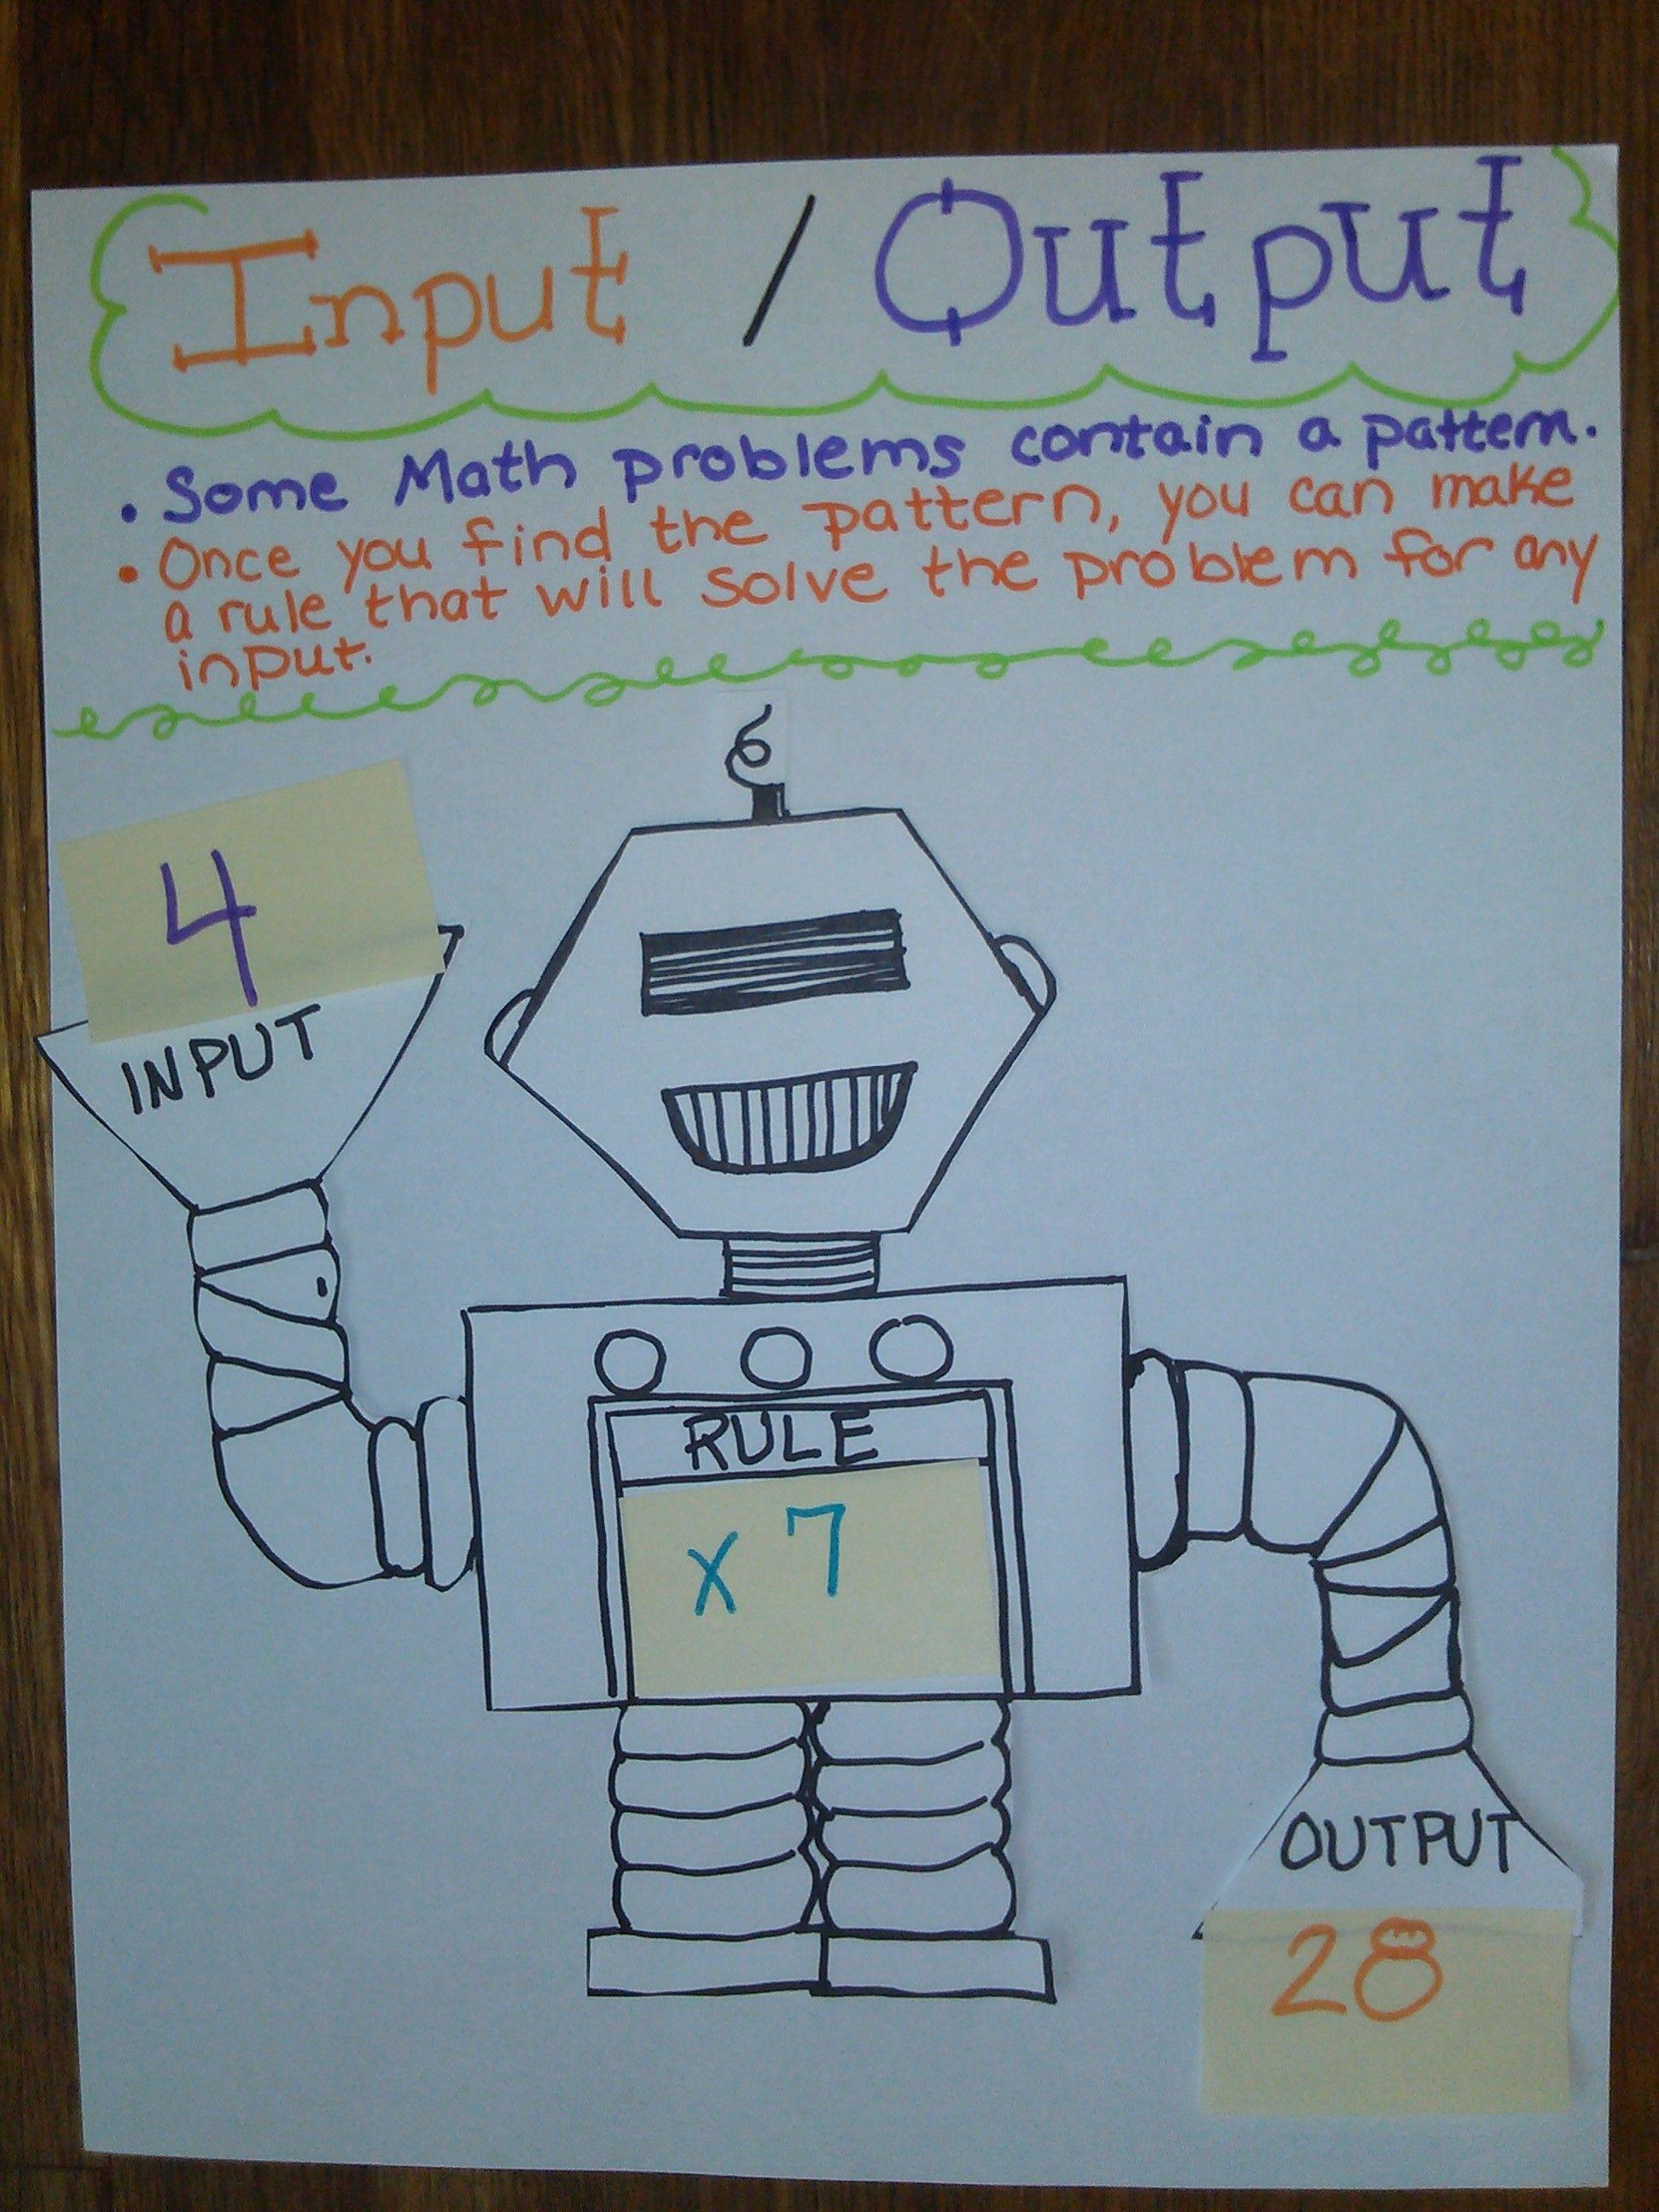 Input / Output
• Some Math problems contain a pattern.
• Once you find the pattern, you can make
a rule that will solve the problem for any
input.
4
INPUT
RULE
x 7
OUTPUT
28